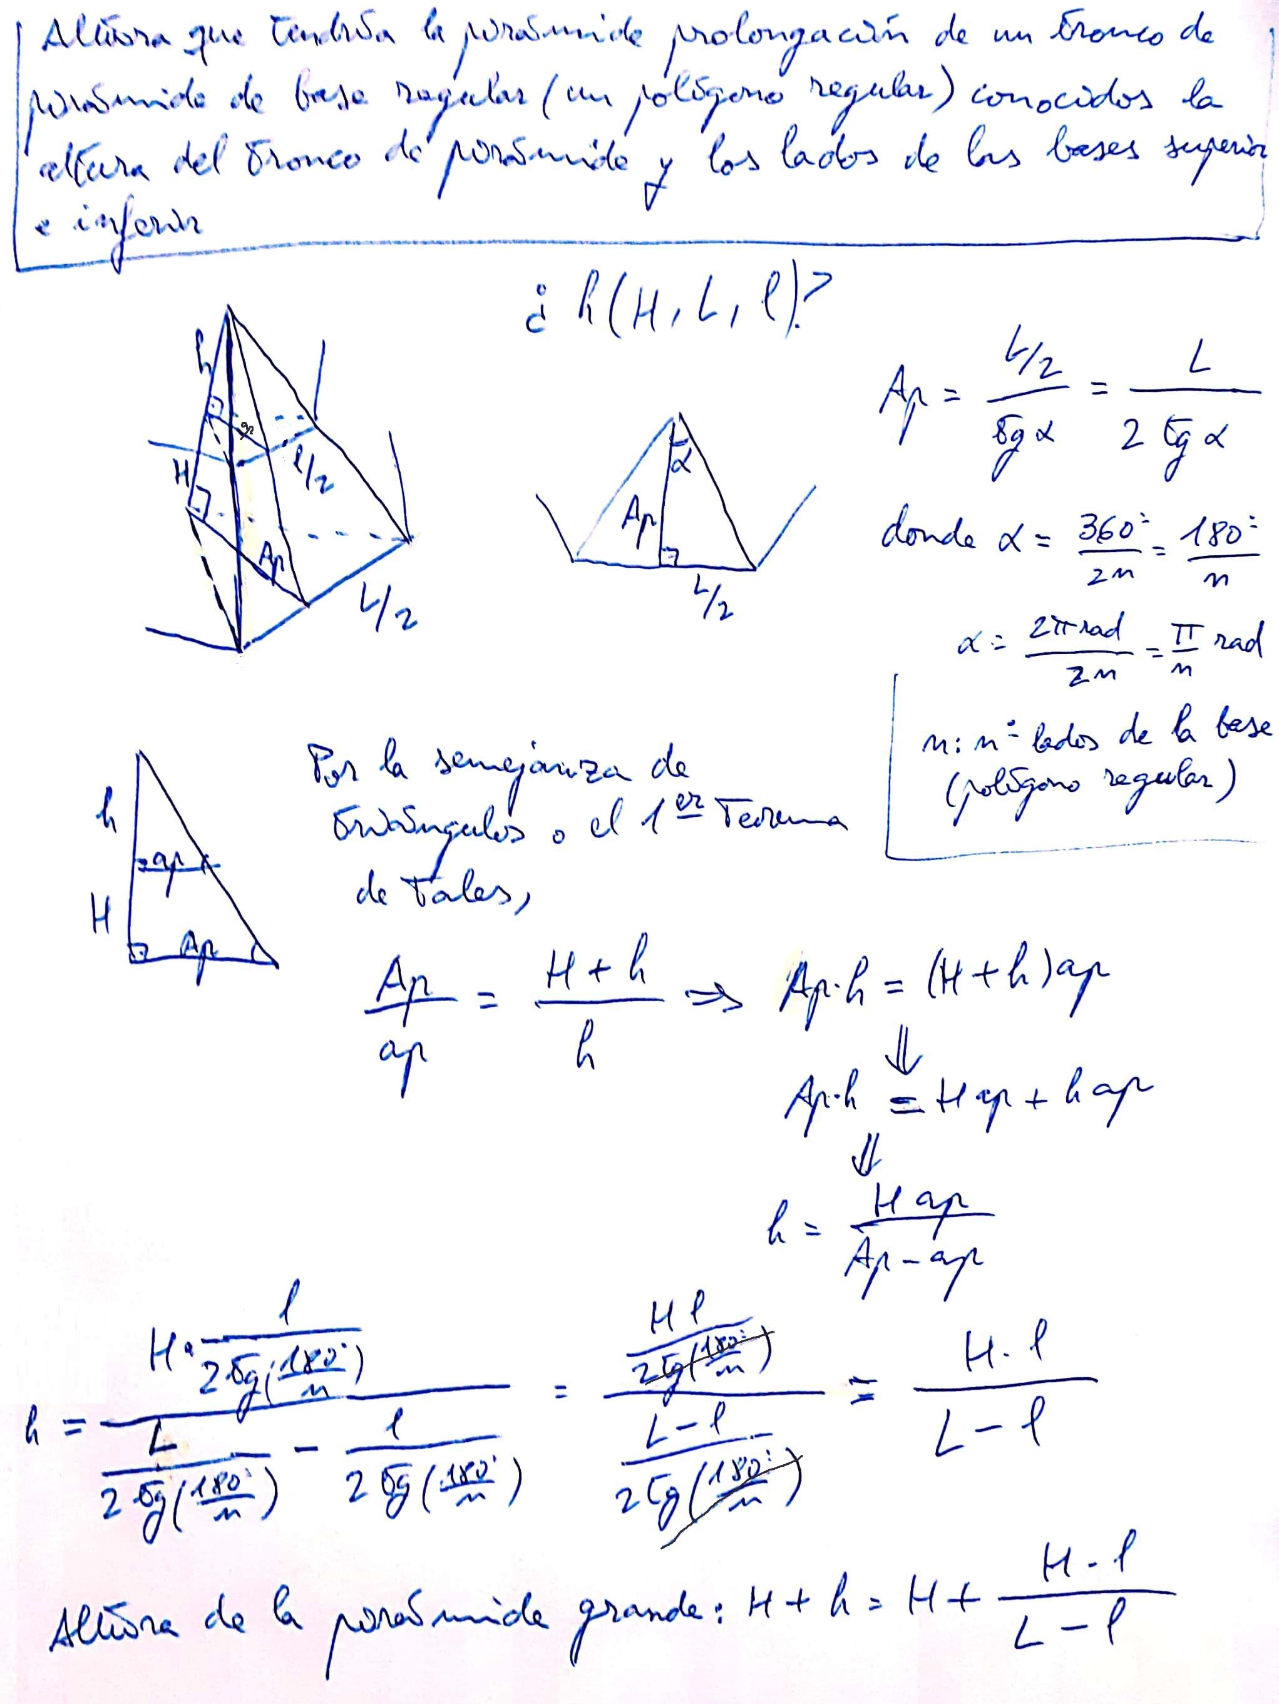 Altura que tendría la pirámide prolongación de un tronco de
pirámide de base regular (un polígono regular) conocidos la
altura del tronco de pirámide y los lados de las bases superior
e inferior
¿h(H, L, l)?
h
H
ap
l/2
Ap
L/2
α
Ap
L/2
Ap = (L/2)/(tg α) = L/(2 tg α)
donde α = 360°/2n = 180°/n
α = 2π rad/2n = π/n rad
n: nº lados de la base
(polígono regular)
h
ap
H
Ap
Por la semejanza de
triángulos o el 1er Teorema
de Tales,
Ap/ap = (H + h)/h ⇒ Ap·h = (H + h) ap
⇓
Ap·h = H ap + h ap
⇓
h = H ap/(Ap - ap)
h = (H · l/(2 tg(180°/n)))/(L/(2 tg(180°/n)) - l/(2 tg(180°/n))) = (H l/(2 tg(180°/n)))/((L - l)/(2 tg(180°/n))) = H · l/(L - l)
Altura de la pirámide grande: H + h = H + H · l/(L - l)